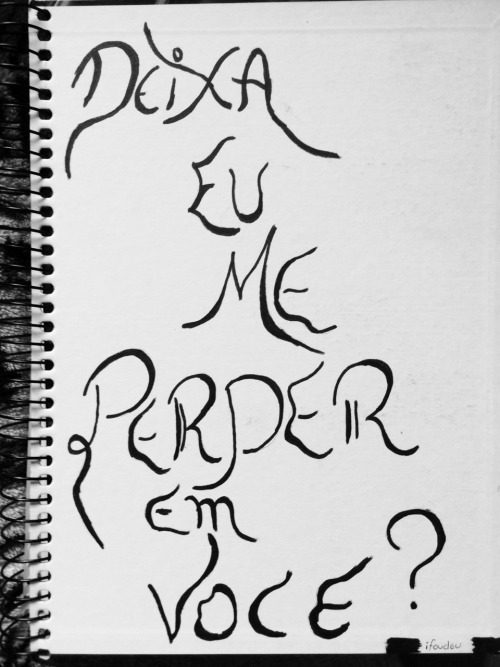 DEIXA
EU
ME
PERDER
EM
VOCE?